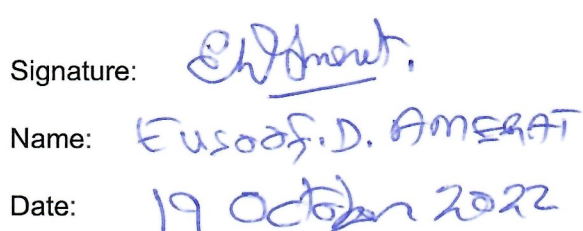 Signature: EDAmerat.
Name: Eusoof. D. AMERAT
Date: 19 October 2022